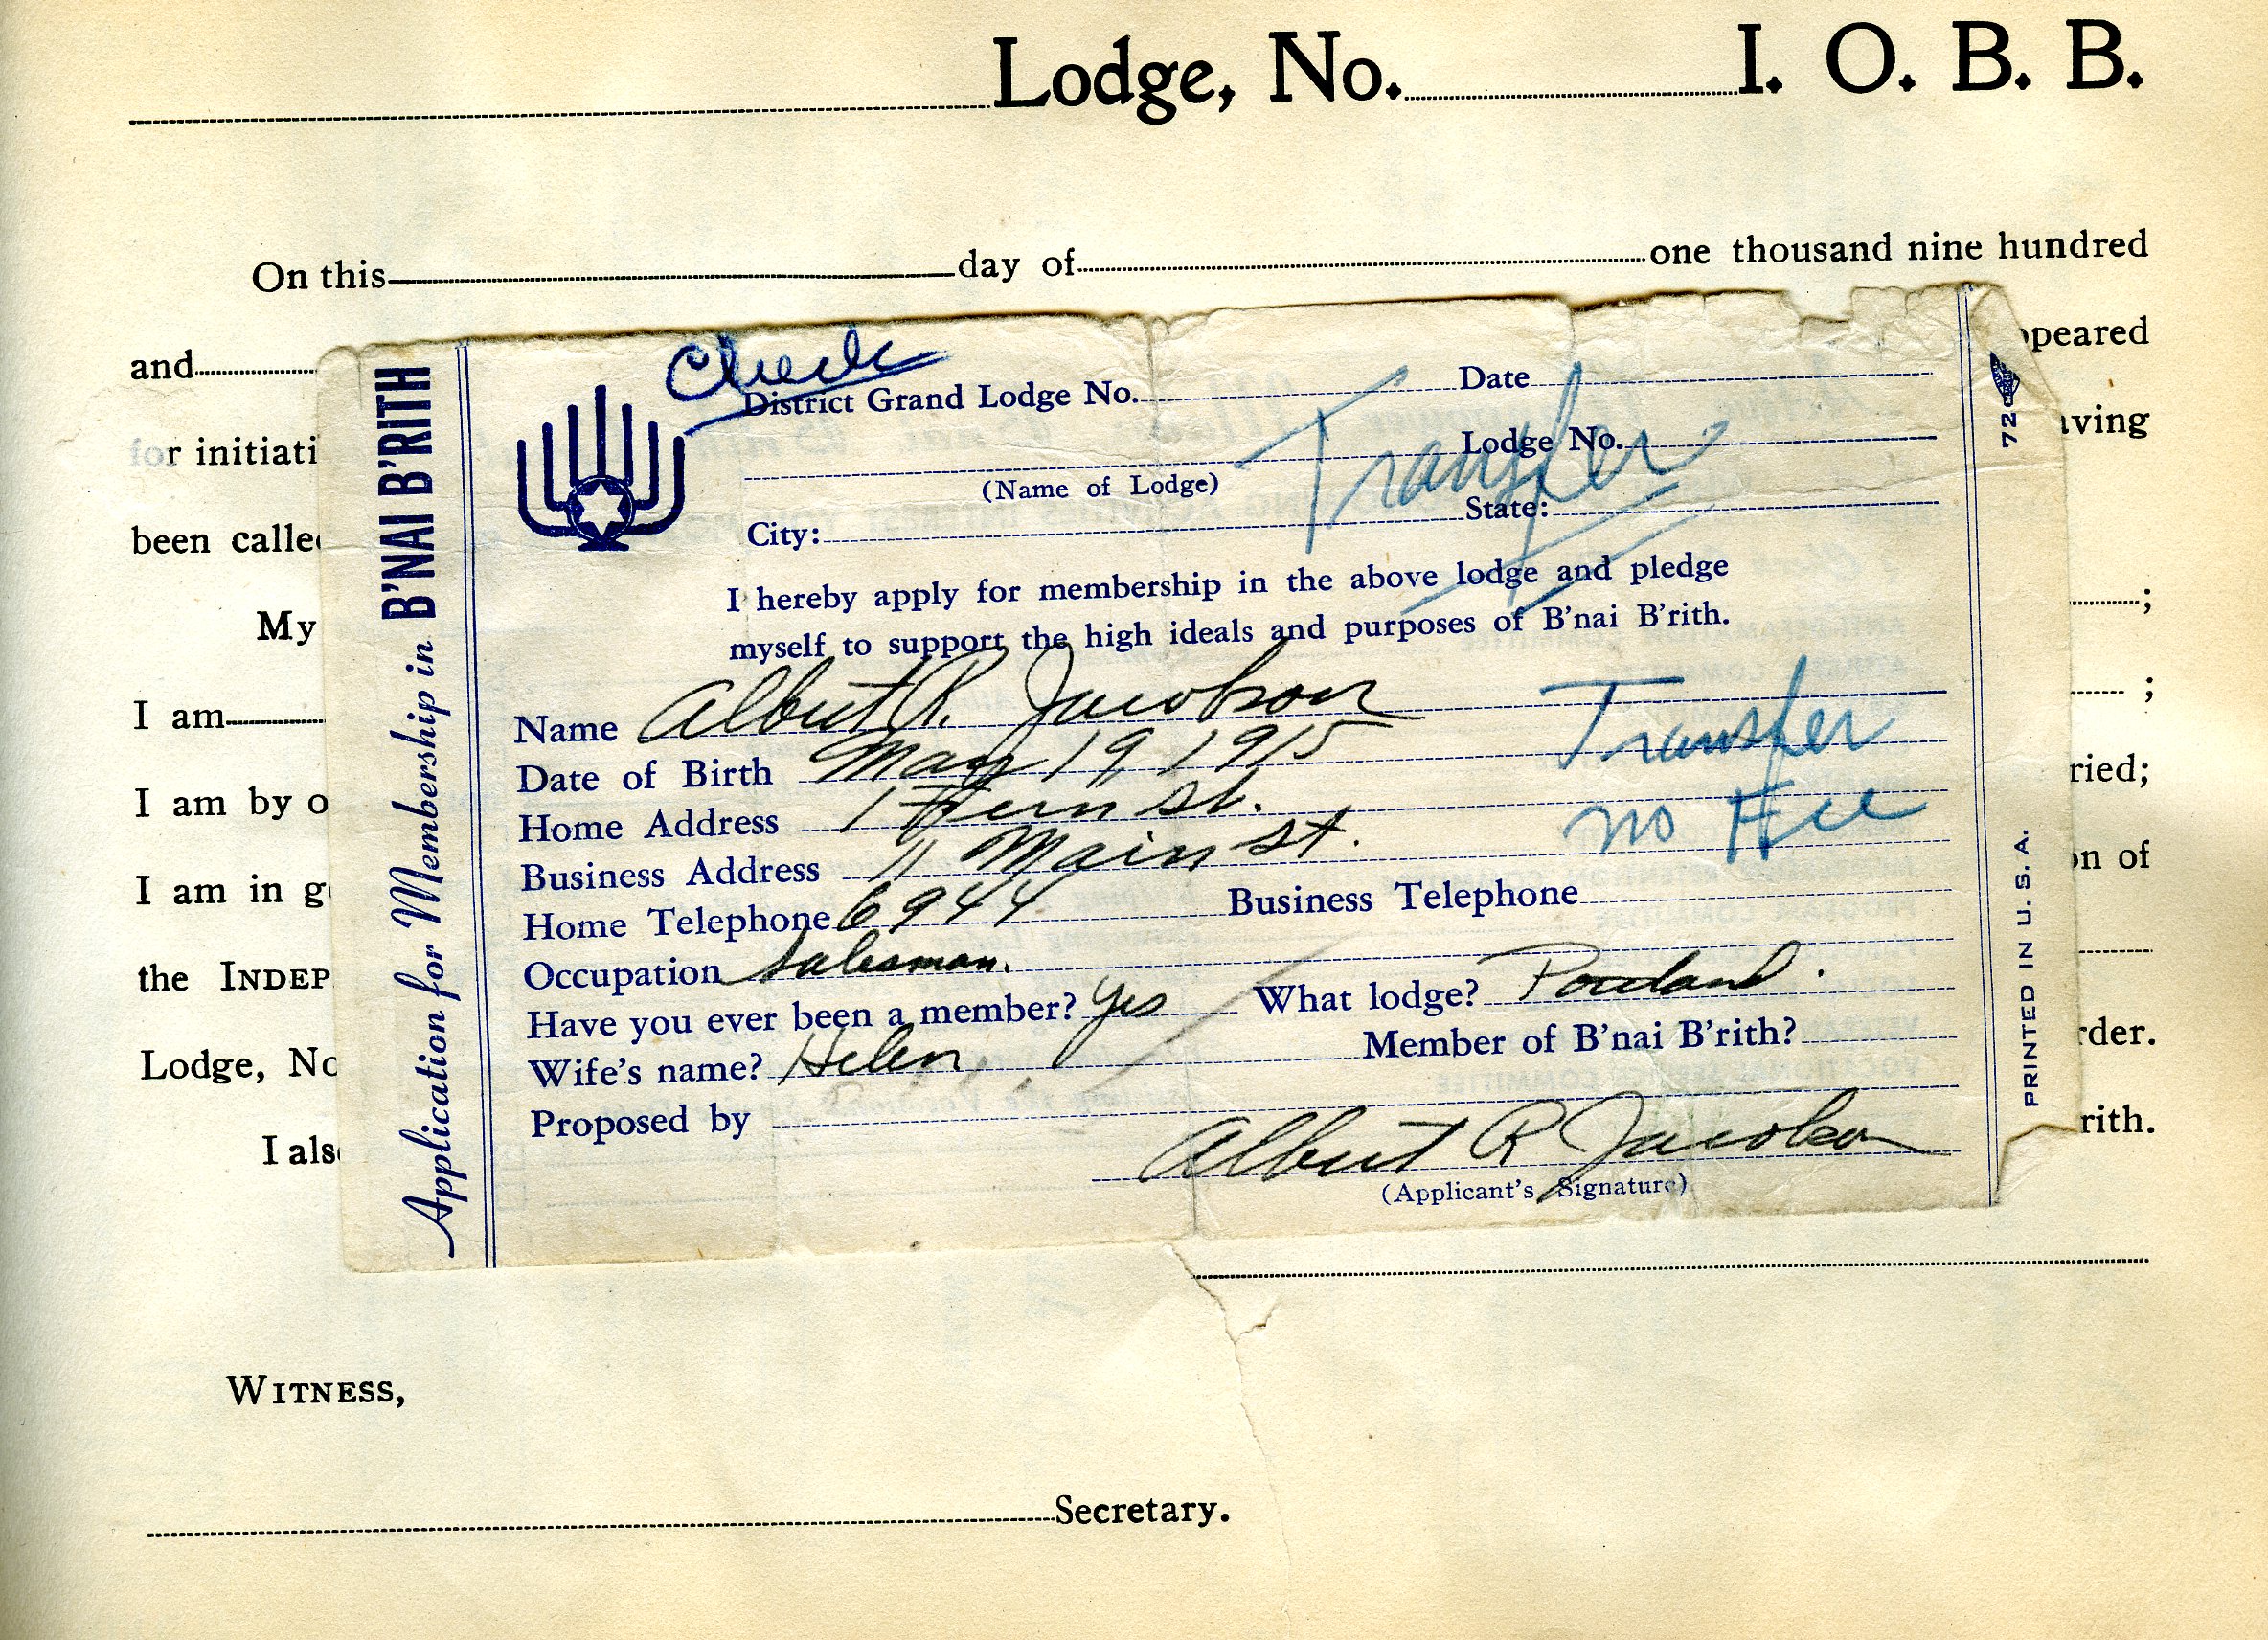 Lodge, No. I. O. B. B.
On this day of one thousand nine hundred
and ppeared
for initiati aving
been calle
My ;
I am ;
I am by o ried;
I am in g on of
the INDEP
Lodge, No rder.
I als rith.
WITNESS,
Secretary.
Application for Membership in B'NAI B'RITH
Check
District Grand Lodge No. Date
Transfer
Lodge No.
(Name of Lodge)
City: State:
I hereby apply for membership in the above lodge and pledge
myself to support the high ideals and purposes of B'nai B'rith.
Name Albert R. Jacobson Transfer
Date of Birth May 19, 1915
Home Address 1 Fern St. no Fee
Business Address 11 Main St.
Home Telephone 6944 Business Telephone
Occupation Salesman.
Have you ever been a member? Yes What lodge? Portland.
Wife's name? Helen Member of B'nai B'rith?
Proposed by
Albert R Jacobson
(Applicant's Signature)
72
PRINTED IN U. S. A.